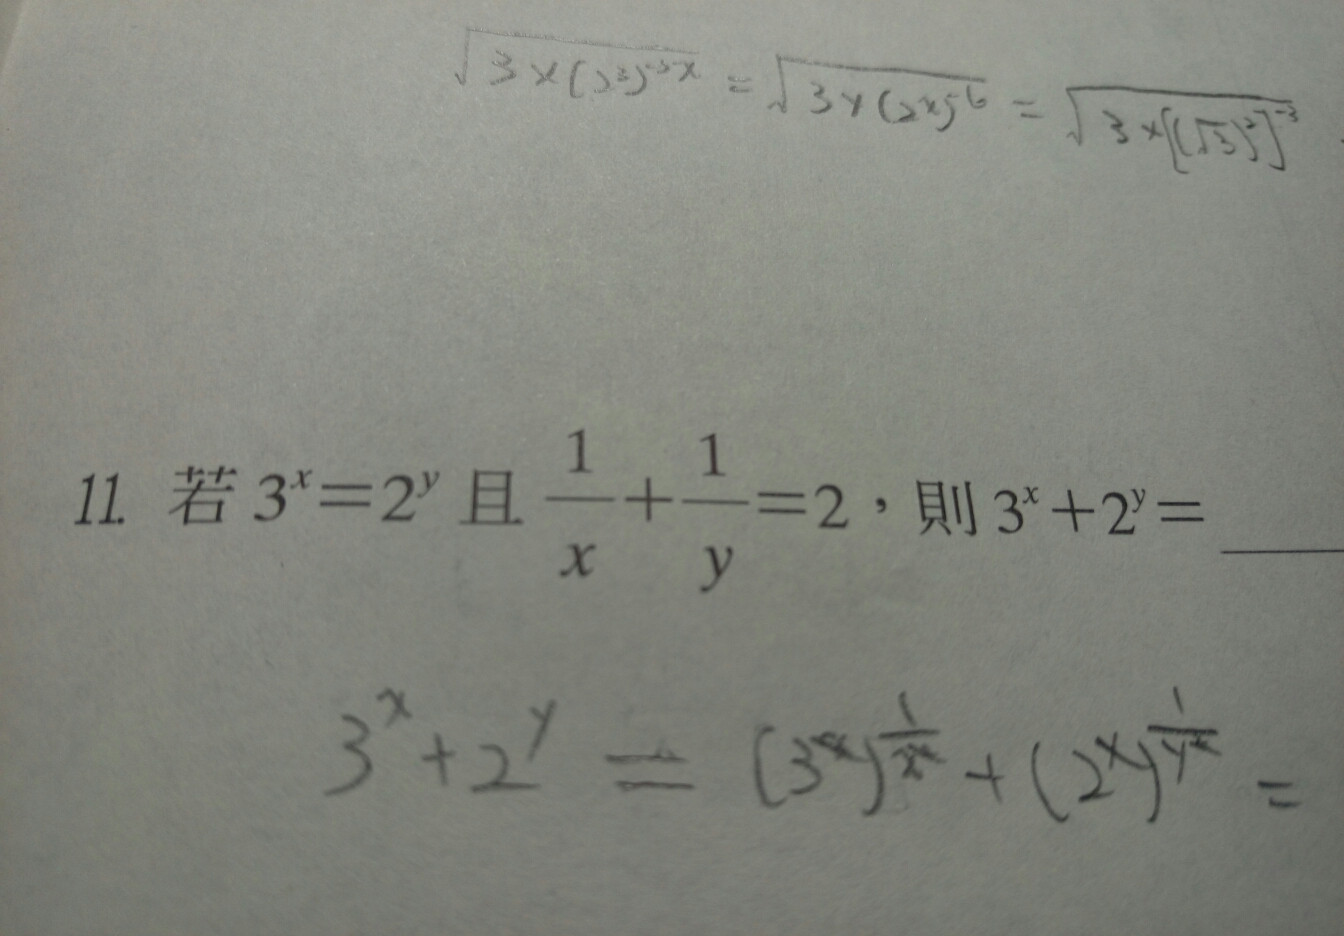 √3×(2³)⁻³ˣ = √3×(2ˣ)⁻⁶ = √3×[(√3)²]⁻³
11. 若 3ˣ=2ʸ 且 1/x + 1/y = 2，則 3ˣ+2ʸ=
3ˣ+2ʸ = (3ˣ)^(1/x) + (2ˣ)^(1/y) =